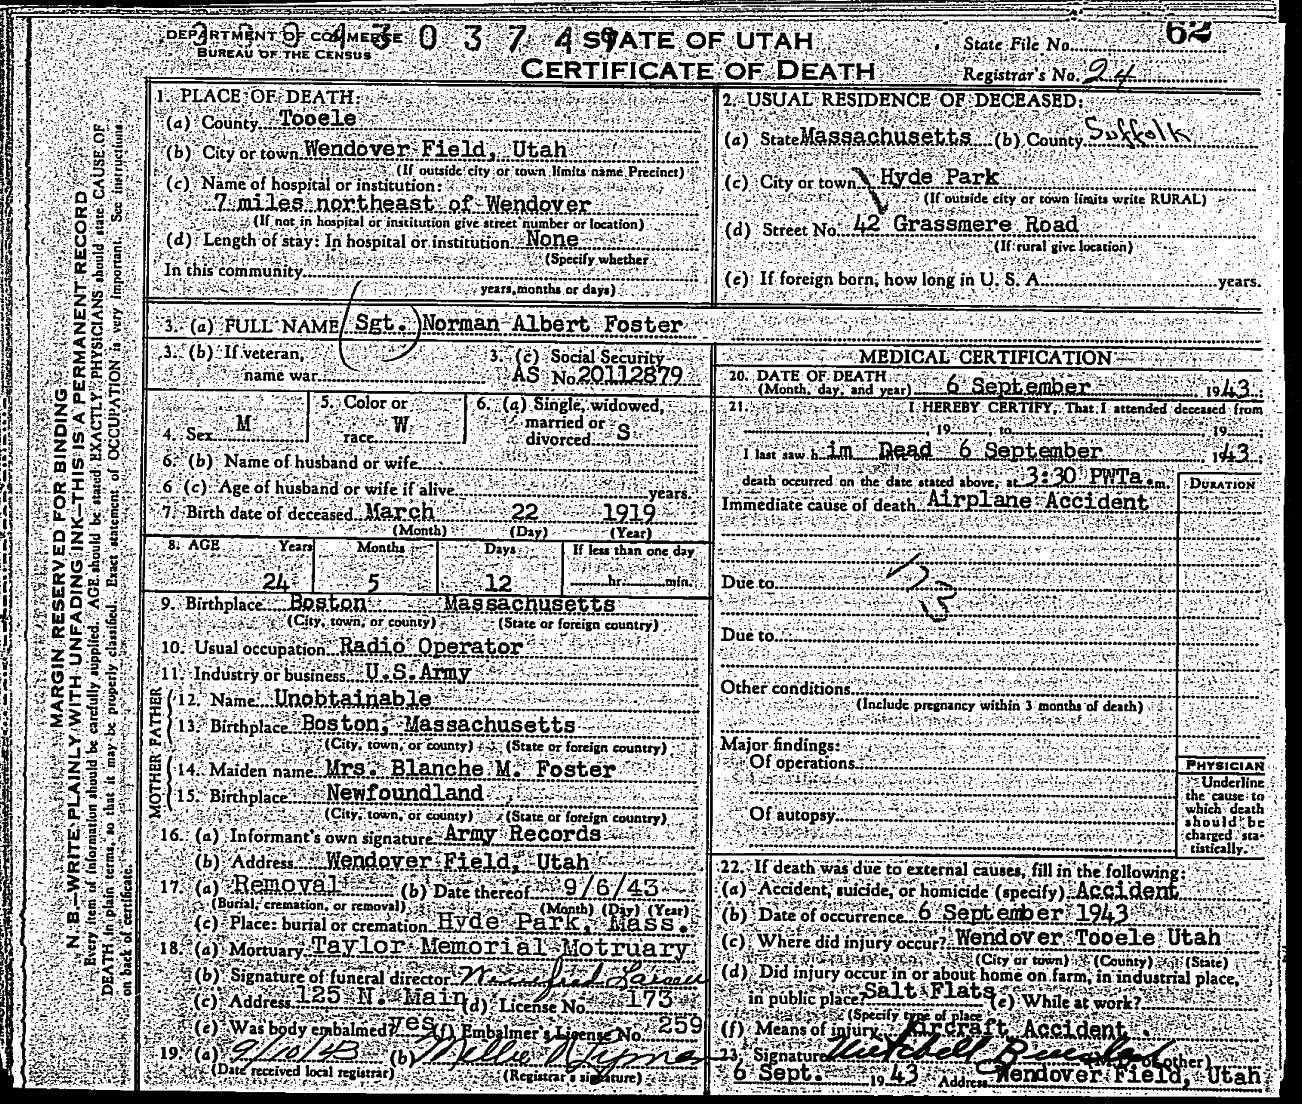 DEPARTMENT OF COMMERCE
BUREAU OF THE CENSUS
STATE OF UTAH
CERTIFICATE OF DEATH
State File No. 62
Registrar's No. 24
MARGIN RESERVED FOR BINDING
N. B.—WRITE PLAINLY WITH UNFADING INK—THIS IS A PERMANENT RECORD
Every item of information should be carefully supplied. AGE should be stated EXACTLY. PHYSICIANS should state CAUSE OF
DEATH in plain terms, so that it may be properly classified. Exact statement of OCCUPATION is very important. See instructions
on back of certificate.
1. PLACE OF DEATH:
(a) County Tooele
(b) City or town Wendover Field, Utah
(If outside city or town limits name Precinct)
(c) Name of hospital or institution:
7 miles northeast of Wendover
(If not in hospital or institution give street number or location)
(d) Length of stay: In hospital or institution None
(Specify whether
In this community
years, months or days)
2. USUAL RESIDENCE OF DECEASED:
(a) State Massachusetts (b) County Suffolk
(c) City or town Hyde Park
(If outside city or town limits write RURAL)
(d) Street No. 42 Grassmere Road
(If rural give location)
(e) If foreign born, how long in U. S. A. years.
3. (a) FULL NAME (Sgt.) Norman Albert Foster
3. (b) If veteran,
name war
3. (c) Social Security
AS No. 20112879
4. Sex M
5. Color or
race W
6. (a) Single, widowed,
married or
divorced S
6. (b) Name of husband or wife
6 (c) Age of husband or wife if alive years.
7. Birth date of deceased March 22 1919
(Month) (Day) (Year)
8. AGE Years Months Days If less than one day
24 5 12 hr. min.
9. Birthplace Boston Massachusetts
(City, town, or county) (State or foreign country)
10. Usual occupation Radio Operator
11. Industry or business U.S.Army
FATHER
12. Name Unobtainable
13. Birthplace Boston, Massachusetts
(City, town, or county) (State or foreign country)
MOTHER
14. Maiden name Mrs. Blanche M. Foster
15. Birthplace Newfoundland
(City, town, or county) (State or foreign country)
16. (a) Informant's own signature Army Records
(b) Address Wendover Field, Utah
17. (a) Removal (b) Date thereof 9/6/43
(Burial, cremation, or removal) (Month) (Day) (Year)
(c) Place: burial or cremation Hyde Park, Mass.
18. (a) Mortuary Taylor Memorial Motruary
(b) Signature of funeral director
(c) Address 125 N. Main (d) License No. 173
(e) Was body embalmed? yes (f) Embalmer's License No. 259
19. (a) 9/10/43 (b)
(Date received local registrar) (Registrar's signature)
MEDICAL CERTIFICATION
20. DATE OF DEATH
(Month, day, and year) 6 September, 1943.
21. I HEREBY CERTIFY, That I attended deceased from
, 19 , to , 19 ;
I last saw h im Dead 6 September 1943;
death occurred on the date stated above, at 3:30 PWTa.m.
DURATION
Immediate cause of death Airplane Accident
Due to
Due to
Other conditions
(Include pregnancy within 3 months of death)
Major findings:
Of operations
Of autopsy
PHYSICIAN
Underline
the cause to
which death
should be
charged sta-
tistically.
22. If death was due to external causes, fill in the following:
(a) Accident, suicide, or homicide (specify) Accident
(b) Date of occurrence 6 September 1943
(c) Where did injury occur? Wendover Tooele Utah
(City or town) (County) (State)
(d) Did injury occur in or about home on farm, in industrial place,
in public place? Salt Flats (e) While at work?
(Specify type of place
(f) Means of injury Aircraft Accident.
23. Signature other)
6 Sept. 1943 Address Wendover Field, Utah